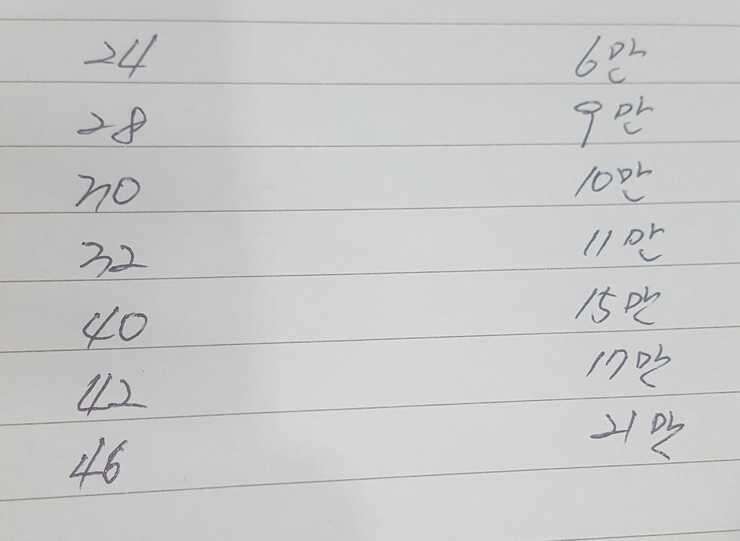 24 6만
28 9만
30 10만
32 11만
40 15만
42 17만
46 21만